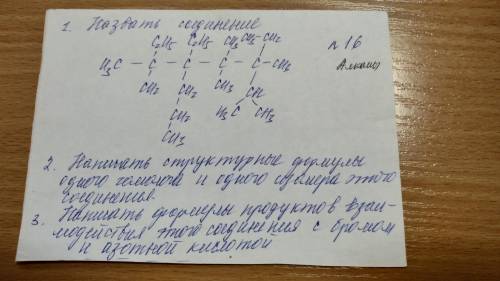 1. Назвать соединение
C₂H₅ C₂H₅ CH₃ CH₂-CH₃
N 16
Алканы
H₃C - C - C - C - C - CH₃
CH₃ CH₂ CH₃ CH
CH₂ H₃C CH₃
CH₃
2. Написать структурные формулы
одного гомолога и одного изомера этого
соединения
3. Написать формулы продуктов взаи-
модействия этого соединения с бромом
и азотной кислотой